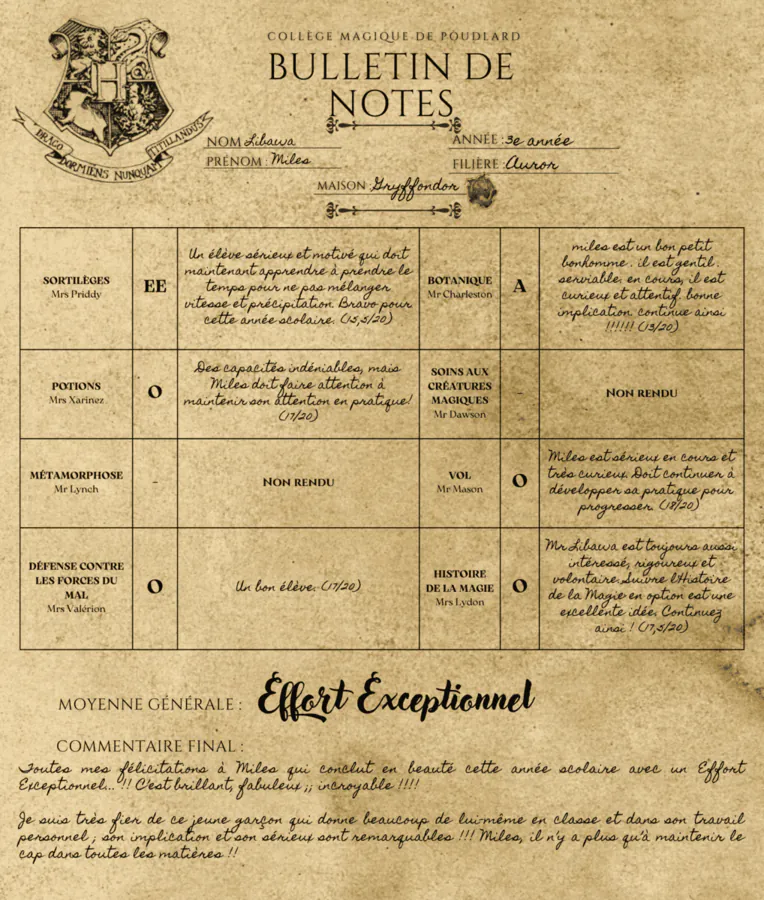 COLLÈGE MAGIQUE DE POUDLARD
BULLETIN DE
NOTES
DRACO DORMIENS NUNQUAM TITILLANDUS
NOM : Libawa
ANNÉE : 3e année
PRÉNOM : Miles
FILIÈRE : Auror
MAISON : Gryffondor
SORTILÈGES
Mrs Priddy
EE
Un élève sérieux et motivé qui doit
maintenant apprendre à prendre le
temps pour ne pas mélanger
vitesse et précipitation. Bravo pour
cette année scolaire. (15,5/20)
BOTANIQUE
Mr Charleston
A
miles est un bon petit
bonhomme . il est gentil .
serviable. en cours, il est
curieux et attentif. bonne
implication. continue ainsi
!!!!!! (13/20)
POTIONS
Mrs Xarinez
O
Des capacités indéniables, mais
Miles doit faire attention à
maintenir son attention en pratique!
(17/20)
SOINS AUX
CRÉATURES
MAGIQUES
Mr Dawson
-
NON RENDU
MÉTAMORPHOSE
Mr Lynch
-
NON RENDU
VOL
Mr Mason
O
Miles est sérieux en cours et
très curieux. Doit continuer à
développer sa pratique pour
progresser. (18/20)
DÉFENSE CONTRE
LES FORCES DU
MAL
Mrs Valérion
O
Un bon élève. (17/20)
HISTOIRE
DE LA MAGIE
Mrs Lydon
O
Mr Libawa est toujours aussi
intéressé, rigoureux et
volontaire. Suivre l'Histoire
de la Magie en option est une
excellente idée. Continuez
ainsi ! (17,5/20)
MOYENNE GÉNÉRALE : Effort Exceptionnel
COMMENTAIRE FINAL :
Toutes mes félicitations à Miles qui conclut en beauté cette année scolaire avec un Effort
Exceptionnel... !! C'est brillant, fabuleux ;; incroyable !!!!
Je suis très fier de ce jeune garçon qui donne beaucoup de lui-même en classe et dans son travail
personnel ; son implication et son sérieux sont remarquables !!! Miles, il n'y a plus qu'à maintenir le
cap dans toutes les matières !!